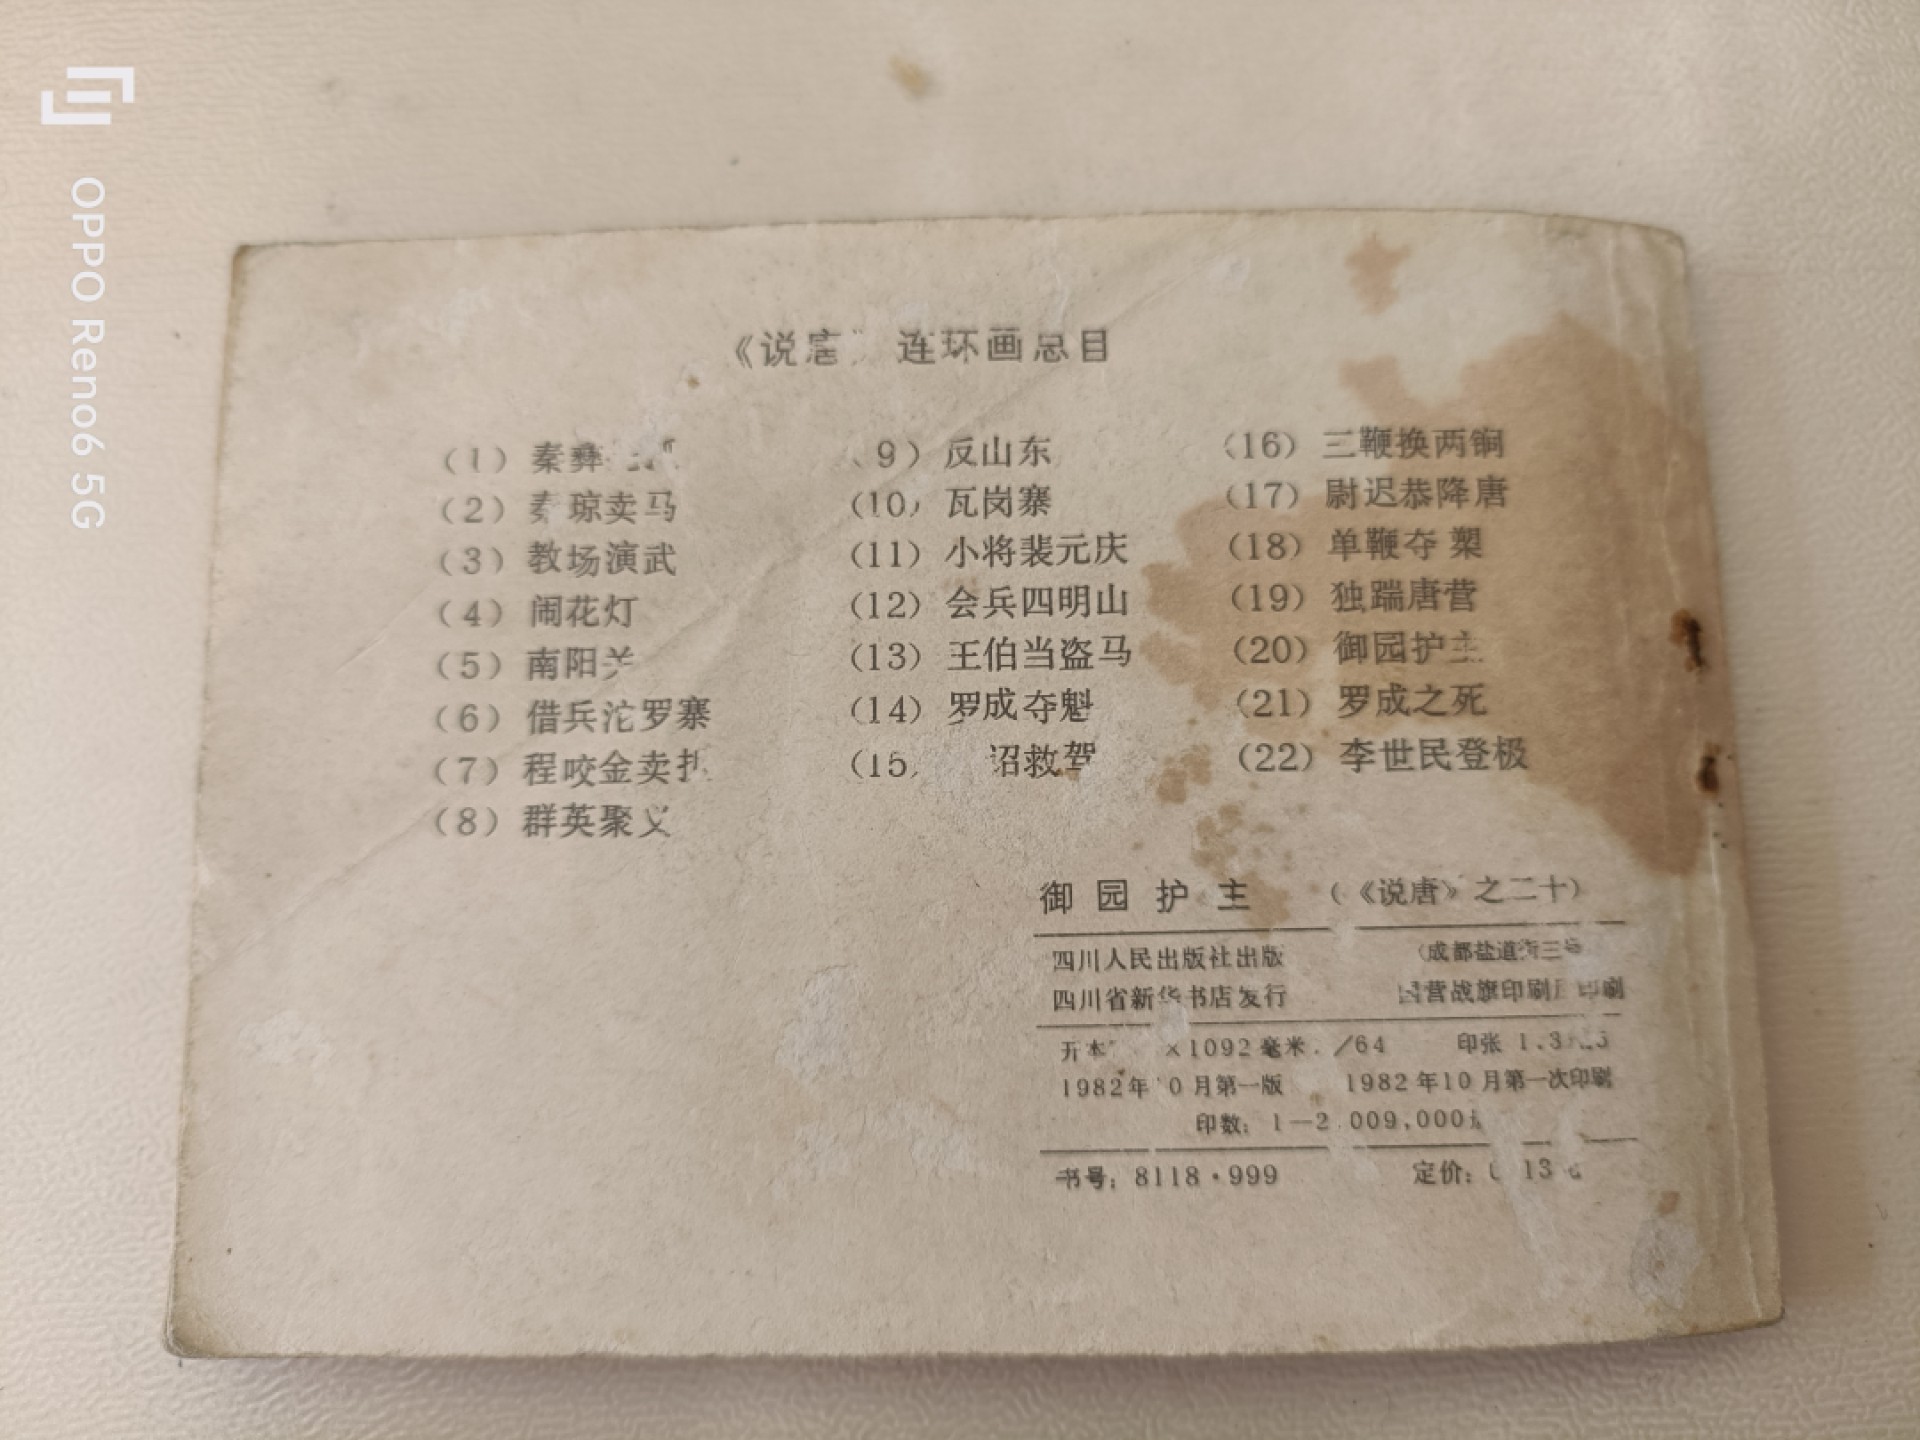 OPPO Reno6 5G
《说唐 连环画总目
(1) 秦彝
(2) 秦琼卖马
(3) 教场演武
(4) 闹花灯
(5) 南阳关
(6) 借兵沱罗寨
(7) 程咬金卖
(8) 群英聚义
9) 反山东
(10) 瓦岗寨
(11) 小将裴元庆
(12) 会兵四明山
(13) 王伯当盗马
(14) 罗成夺魁
(15 诏救驾
(16) 三鞭换两锏
(17) 尉迟恭降唐
(18) 单鞭夺槊
(19) 独踹唐营
(20) 御园护主
(21) 罗成之死
(22) 李世民登极
御园护主 (《说唐》之二十)
四川人民出版社出版 (成都盐道街三号
四川省新华书店发行 国营战旗印刷厂印刷
开本 ×1092毫米 /64 印张 1.3
1982年10月第一版 1982年10月第一次印刷
印数: 1—2,009,000
书号: 8118·999 定价: 13